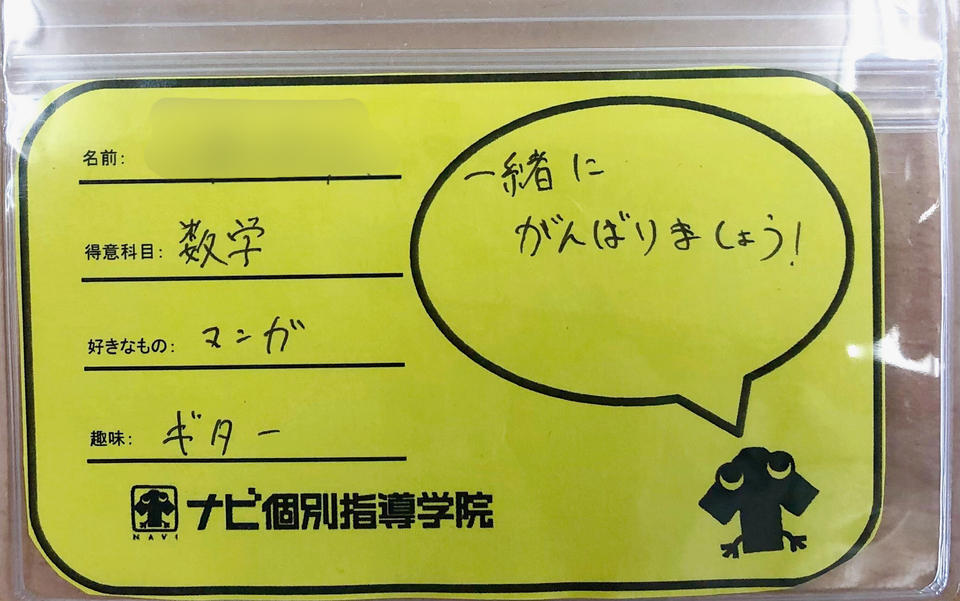 名前:
得意科目: 数学
好きなもの: マンガ
趣味: ギター
一緒に
がんばりましょう!
NAVI
ナビ個別指導学院